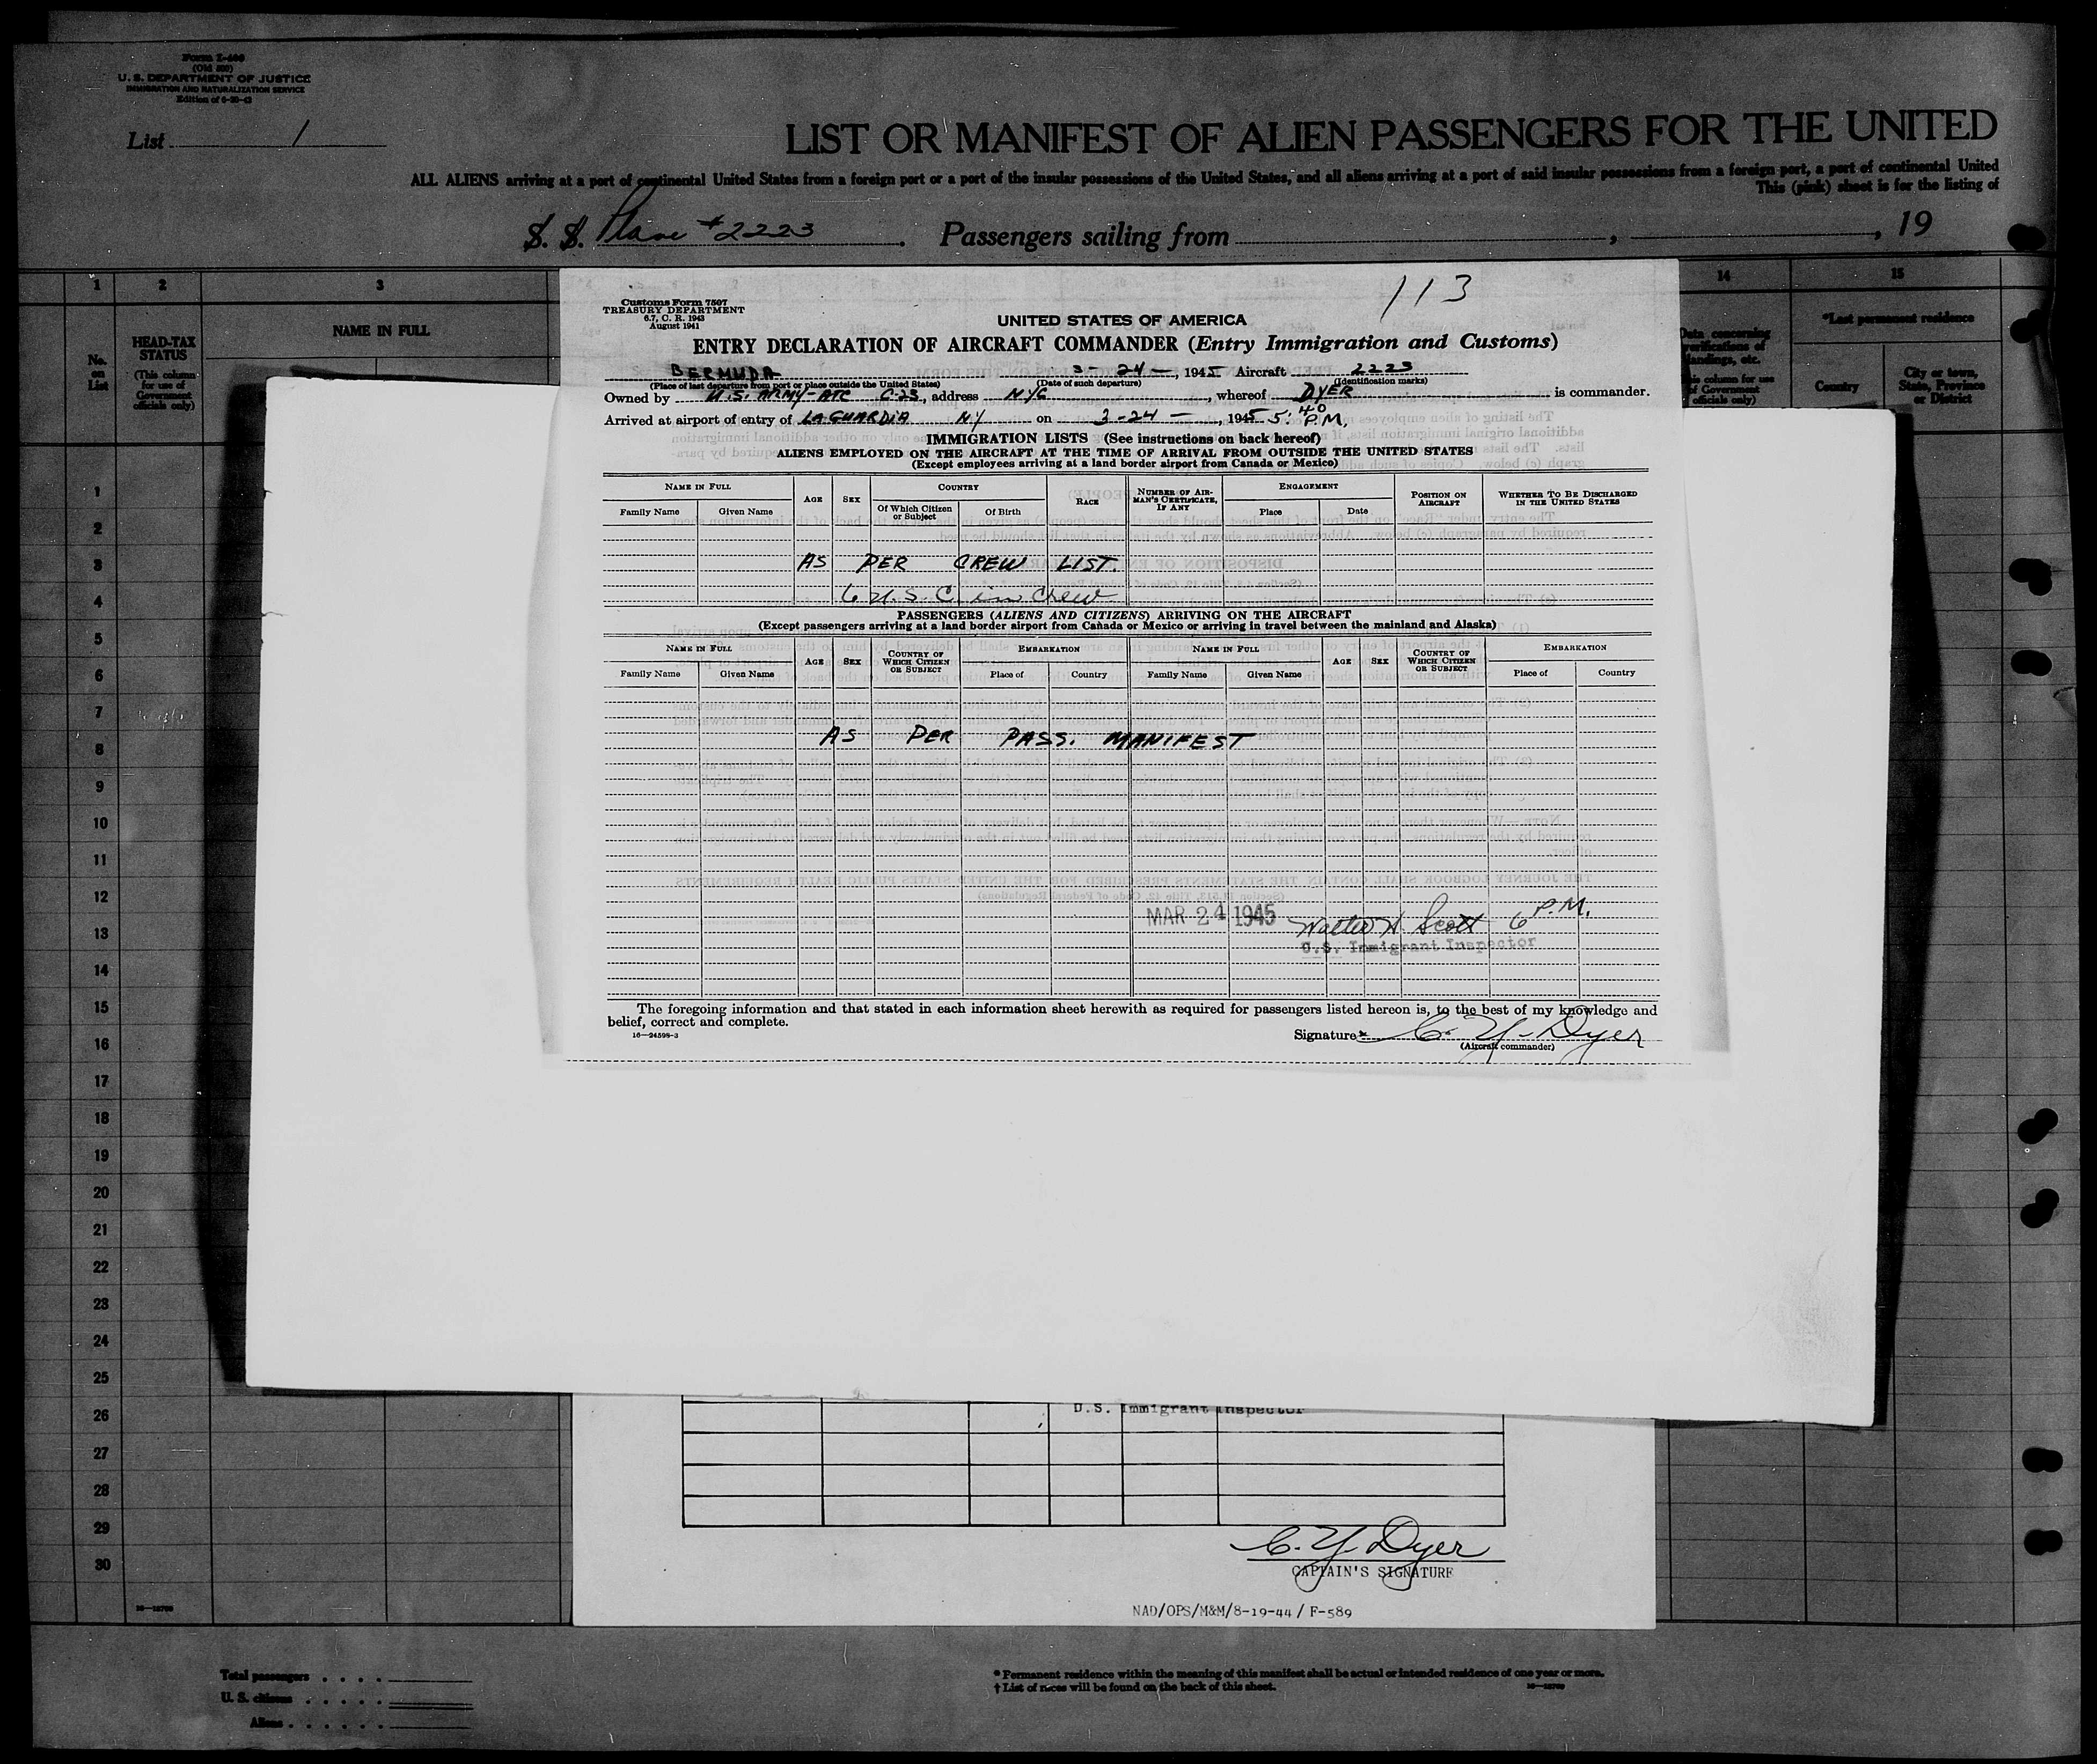 Form I-466
(Old 500)
U. S. DEPARTMENT OF JUSTICE
IMMIGRATION AND NATURALIZATION SERVICE
List 1
LIST OR MANIFEST OF ALIEN PASSENGERS FOR THE UNITED
ALL ALIENS arriving at a port of continental United States from a foreign port or a port of the insular possessions of the United States, and all aliens arriving at a port of said insular possessions from a foreign port, a port of continental United
This (pink) sheet is for the listing of
S. S. Plane #2223. Passengers sailing from , , 19
1 2 3 14 15
No. on List
HEAD-TAX STATUS
(This column for use of Government officials only)
NAME IN FULL
Data concerning verifications of landings, etc.
column for use of Government officials only)
*Last permanent residence
Country
City or town, State, Province or District
113
Customs Form 7507
TREASURY DEPARTMENT
6.7, C. R. 1943
August 1941
UNITED STATES OF AMERICA
ENTRY DECLARATION OF AIRCRAFT COMMANDER (Entry Immigration and Customs)
BERMUDA 3-24-, 1945 Aircraft 2223
(Place of last departure from port or place outside the United States) (Date of such departure) (Identification marks)
Owned by U.S. ARMY-ATC C-23, address NYC, whereof DYER is commander.
Arrived at airport of entry of LAGUARDIA NY on 3-24-, 1945 5:40 P.M.
IMMIGRATION LISTS (See instructions on back hereof)
ALIENS EMPLOYED ON THE AIRCRAFT AT THE TIME OF ARRIVAL FROM OUTSIDE THE UNITED STATES
(Except employees arriving at a land border airport from Canada or Mexico)
NAME IN FULL AGE SEX COUNTRY RACE NUMBER OF AIRMAN'S CERTIFICATE, IF ANY ENGAGEMENT POSITION ON AIRCRAFT WHETHER TO BE DISCHARGED IN THE UNITED STATES
Family Name Given Name Of Which Citizen or Subject Of Birth Place Date
AS PER CREW LIST.
6 U.S.C. in Crew
PASSENGERS (ALIENS AND CITIZENS) ARRIVING ON THE AIRCRAFT
(Except passengers arriving at a land border airport from Canada or Mexico or arriving in travel between the mainland and Alaska)
NAME IN FULL AGE SEX COUNTRY OF WHICH CITIZEN OR SUBJECT EMBARKATION NAME IN FULL AGE SEX COUNTRY OF WHICH CITIZEN OR SUBJECT EMBARKATION
Family Name Given Name Place of Country Family Name Given Name Place of Country
AS PER PASS. MANIFEST
MAR 24 1945 Walter H. Scott 6 P.M.
U.S. Immigrant Inspector
The foregoing information and that stated in each information sheet herewith as required for passengers listed hereon is, to the best of my knowledge and
belief, correct and complete.
16-24598-3
Signature C. Y. Dyer
(Aircraft commander)
1
2
3
4
5
6
7
8
9
10
11
12
13
14
15
16
17
18
19
20
21
22
23
24
25
26
27
28
29
30
U.S. Immigrant Inspector
C. Y. Dyer
CAPTAIN'S SIGNATURE
NAD/OPS/M&M/8-19-44 / F-589
Total passengers
U. S. citizens
Aliens
* Permanent residence within the meaning of this manifest shall be actual or intended residence of one year or more.
† List of races will be found on the back of this sheet.